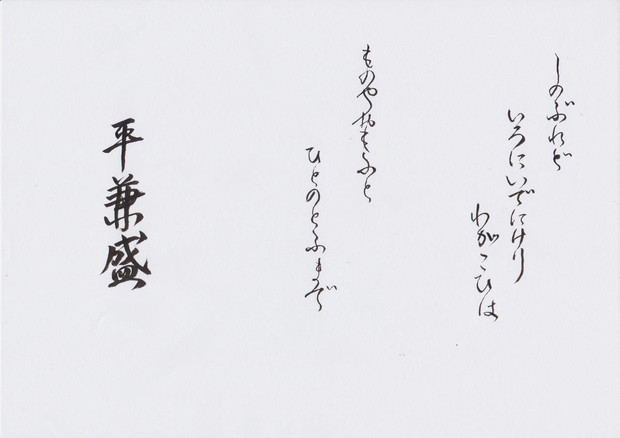 しのぶれど
いろにいでにけり
わがこひは
ものやおもふと
ひとのとふまで
平兼盛